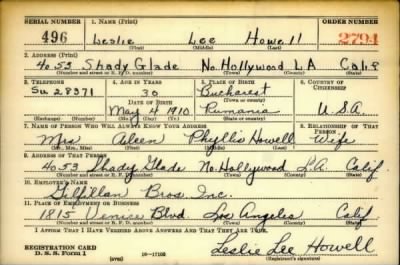 SERIAL NUMBER 1. NAME (Print) ORDER NUMBER
496 Leslie Lee Howell 2794
(First) (Middle) (Last)
2. ADDRESS (Print)
4053 Shady Glade No. Hollywood L A Calif
(Number and street or R. F. D. number) (Town) (County) (State)
3. TELEPHONE 4. AGE IN YEARS 5. PLACE OF BIRTH 6. COUNTRY OF CITIZENSHIP
Su 28371 30 Bucharest
DATE OF BIRTH (Town or county)
May 4 1910 Rumania U.S.A
(Exchange) (Number) (Mo.) (Day) (Yr.) (State or country)
7. NAME OF PERSON WHO WILL ALWAYS KNOW YOUR ADDRESS 8. RELATIONSHIP OF THAT PERSON
Mrs Aileen Phyllis Howell Wife
(Mr., Mrs., Miss) (First) (Middle) (Last)
9. ADDRESS OF THAT PERSON
4053 Shady Glade No. Hollywood L.A. Calif.
(Number and street or R. F. D. number) (Town) (County) (State)
10. EMPLOYER'S NAME
Gilfillan Bros. Inc.
11. PLACE OF EMPLOYMENT OR BUSINESS
1815 Venice Blvd. Los Angeles Calif
(Number and street or R. F. D. number) (Town) (County) (State)
I AFFIRM THAT I HAVE VERIFIED ABOVE ANSWERS AND THAT THEY ARE TRUE.
REGISTRATION CARD
D. S. S. Form 1 (over) 16—17105 Leslie Lee Howell
(Registrant's signature)